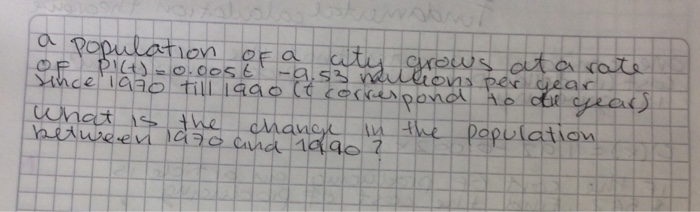 a population of a city grows at a rate
of P'(t)=0.005t -9.53 millions per year
since 1970 till 1990 (t correspond to years)
What is the change in the population
between 1970 and 1990?